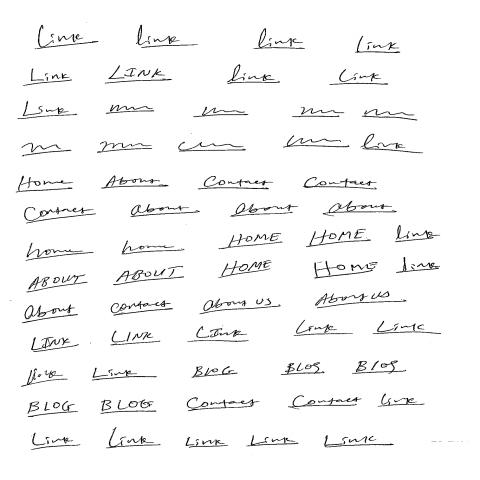 Link link link Link
Link LINK link Link
Link
link
Home About Contact Contact
Contact about About about
home home HOME HOME link
ABOUT ABOUT HOME HOME link
About contact About us About us
LINK LINK LINK Link Link
link Link BLOG BLOG BLOG
BLOG BLOG Contact Contact link
Link Link Link Link Link